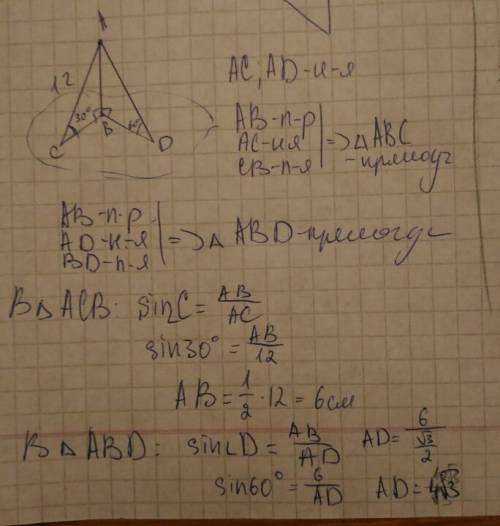 A
12
30°
B
60°
C
D
AC; AD-н-я
AB-п-р
AC-н-я
CB-п-я
=> △ ABC
-прямоуг
AB-п-р
AD-н-я
BD-п-я
=> △ ABD-прямоуг
В △ ACB: sin∠C = AB/AC
sin30° = AB/12
AB = 1/2 · 12 = 6см
В △ ABD: sin∠D = AB/AD AD = 6/(√3/2)
sin60° = 6/AD AD = 4√3